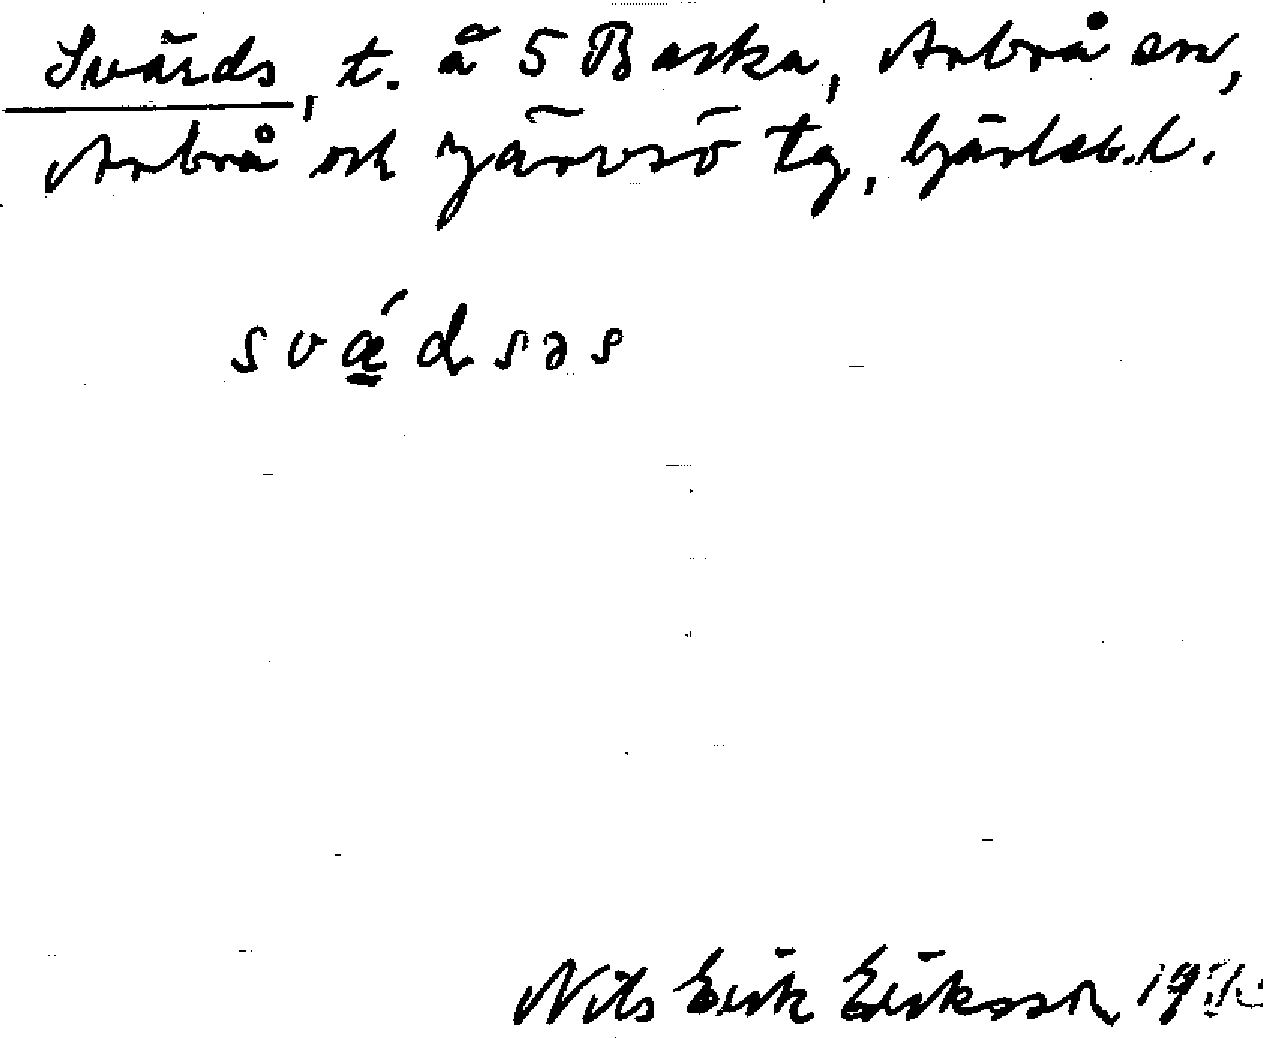 Svärds, t. å 5 Baska, Arbrå sn,
Arbrå och Järvsö tg, Gävleb. l.
svǽdsəs
Nils Erik Eriksson